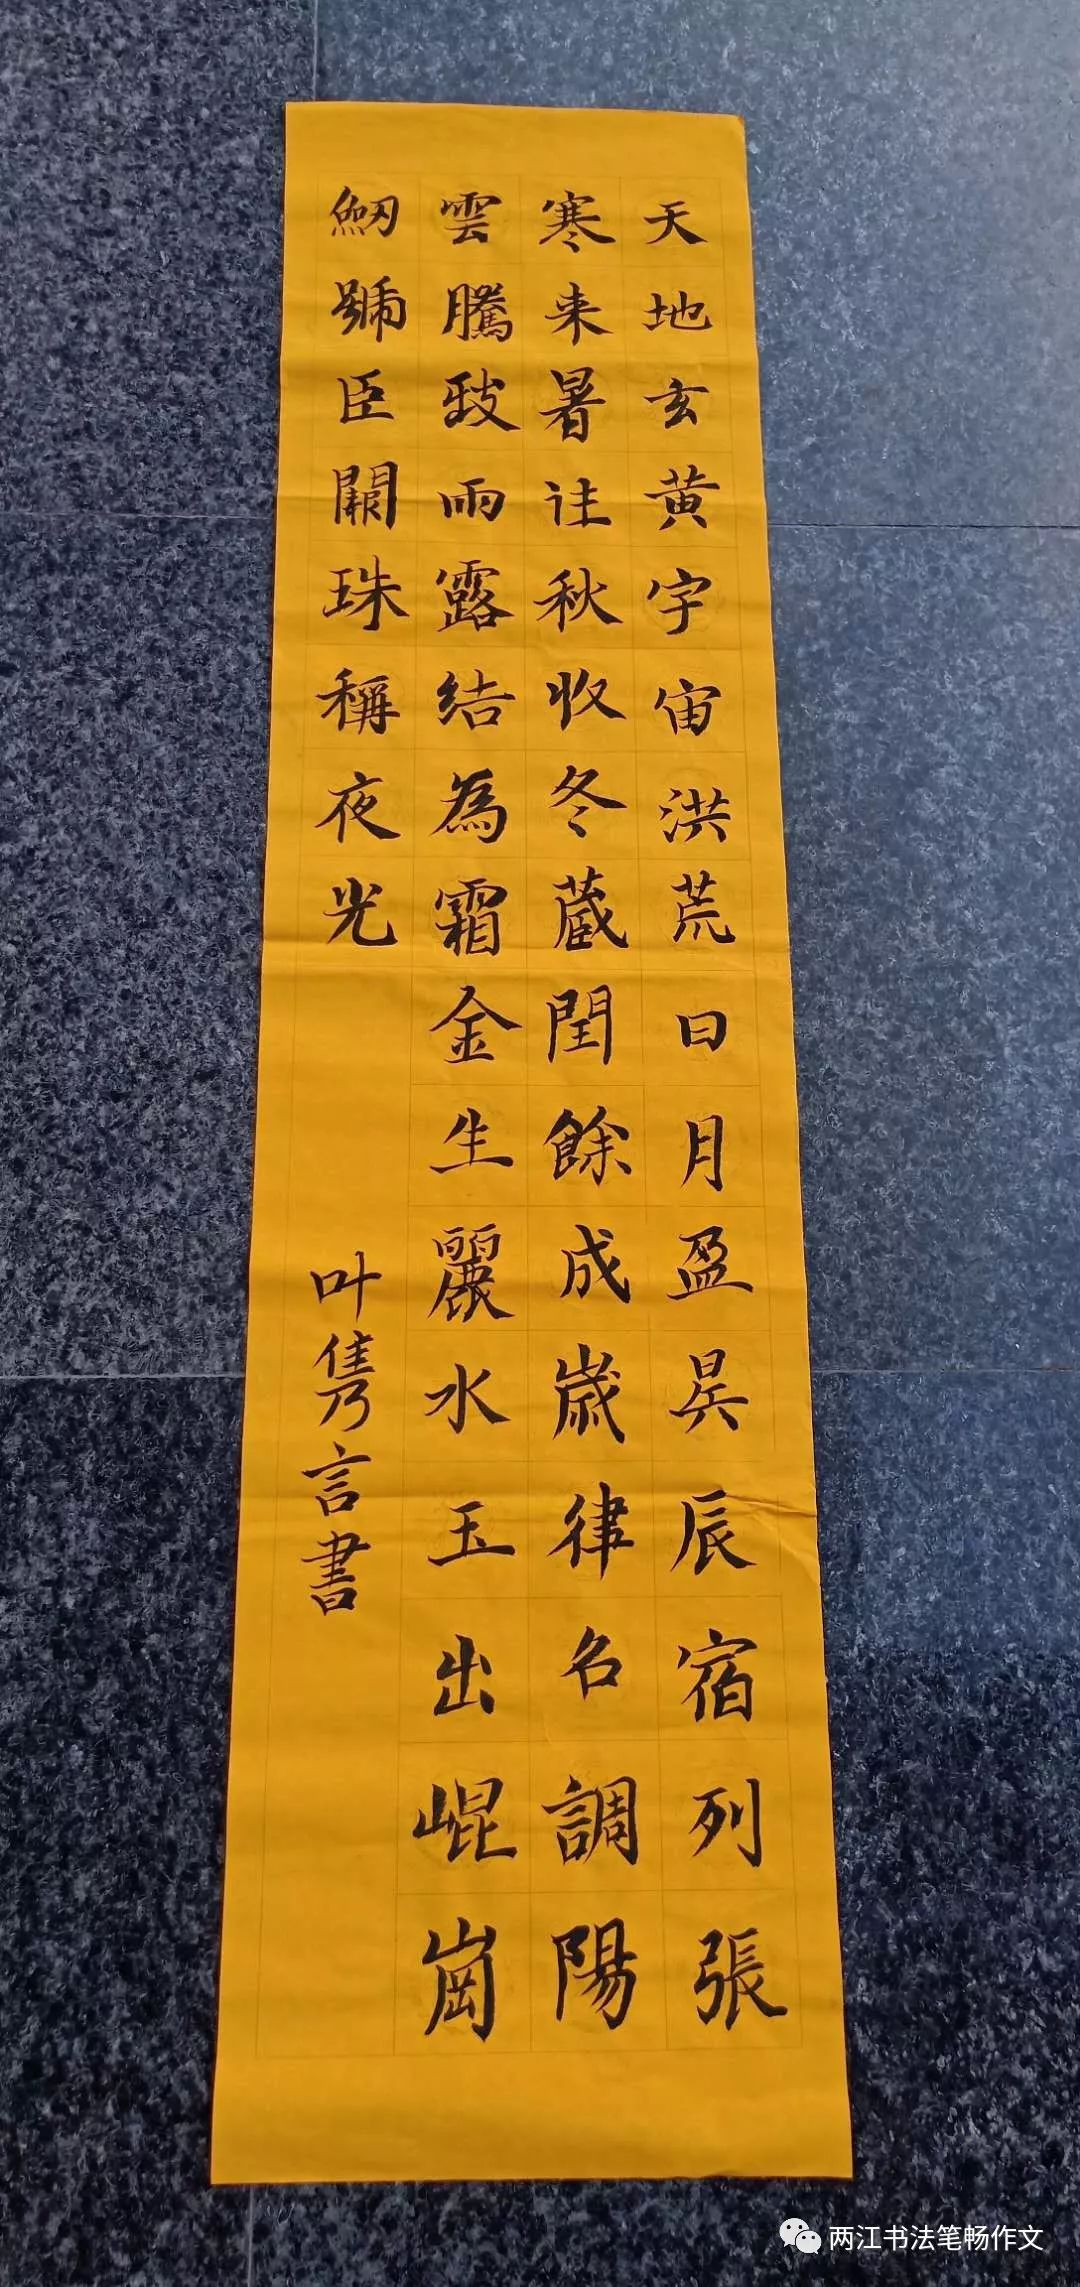 天地玄黄宇宙洪荒日月盈昃辰宿列張
寒来暑往秋收冬蔵閏餘成歲律名調陽
雲騰致雨露結為霜金生麗水玉出崐崗
劒號臣闕珠稱夜光
叶隽言書
两江书法笔畅作文